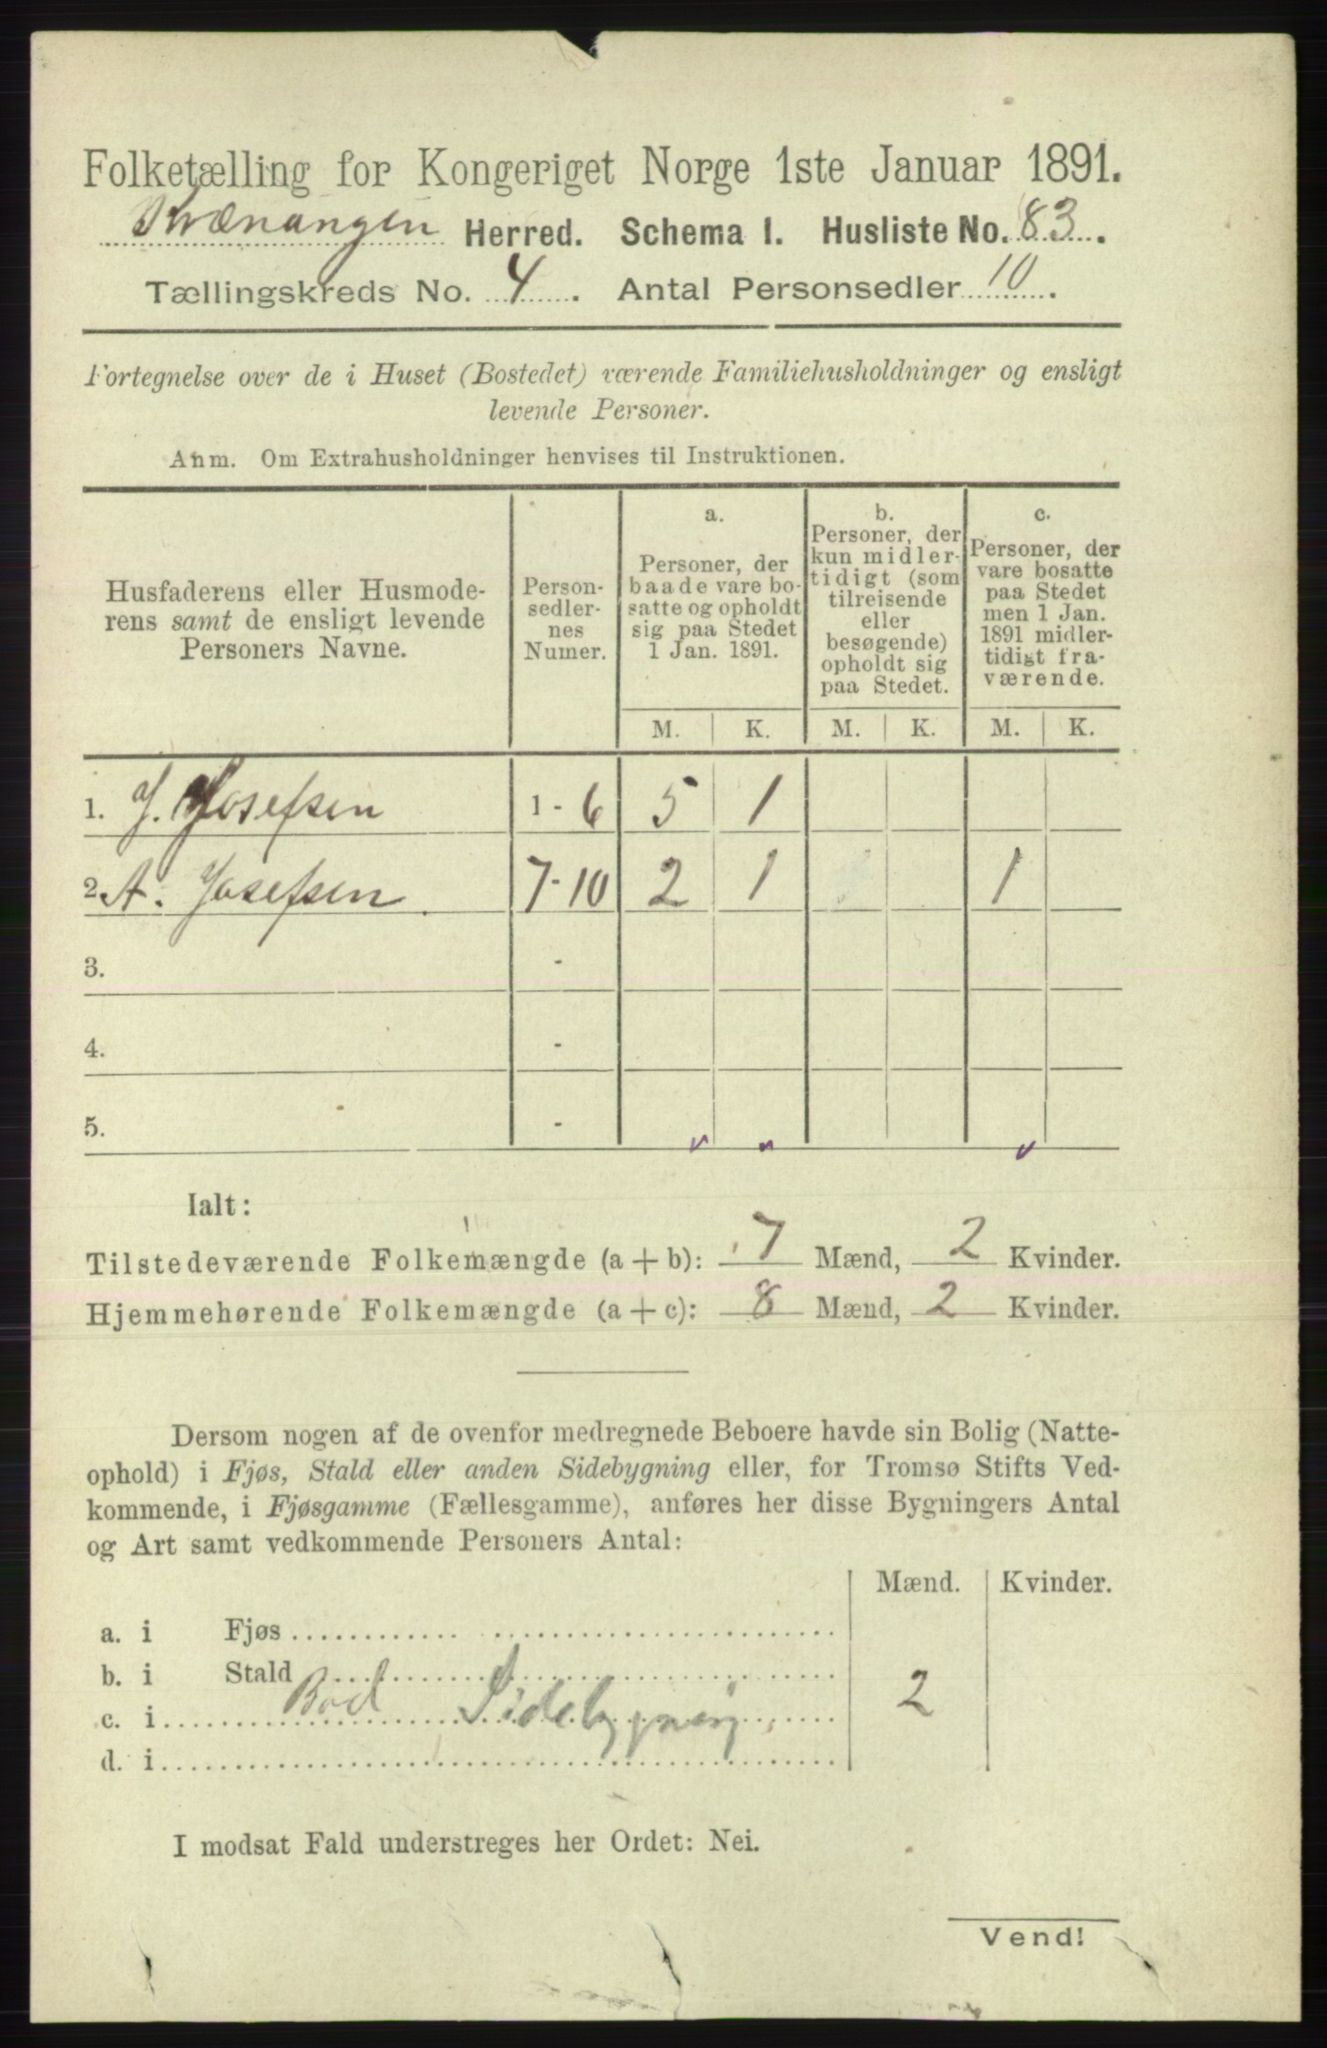 Folketælling for Kongeriget Norge 1ste Januar 1891.
Kvænangen Herred. Schema I. Husliste No. 83.
Tællingskreds No. 4. Antal Personsedler 10.
Fortegnelse over de i Huset (Bostedet) værende Familiehusholdninger og ensligt
levende Personer.
Anm. Om Extrahusholdninger henvises til Instruktionen.
Husfaderens eller Husmode-
rens samt de ensligt levende
Personers Navne.
Person-
sedler-
nes
Numer.
a.
Personer, der
baade vare bo-
satte og opholdt
sig paa Stedet
1 Jan. 1891.
b.
Personer, der
kun midler-
tidigt (som
tilreisende
eller
besøgende)
opholdt sig
paa Stedet.
c.
Personer, der
vare bosatte
paa Stedet
men 1 Jan.
1891 midler-
tidigt fra-
værende.
M. K. M. K. M. K.
1. J. Josefsen 1 - 6 5 1
2. A. Josefsen. 7 - 10 2 1 1
3. -
4. -
5. -
Ialt:
Tilstedeværende Folkemængde (a + b): 7 Mænd, 2 Kvinder.
Hjemmehørende Folkemængde (a + c): 8 Mænd, 2 Kvinder.
Dersom nogen af de ovenfor medregnede Beboere havde sin Bolig (Natte-
ophold) i Fjøs, Stald eller anden Sidebygning eller, for Tromsø Stifts Ved-
kommende, i Fjøsgamme (Fællesgamme), anføres her disse Bygningers Antal
og Art samt vedkommende Personers Antal:
Mænd. Kvinder.
a. i Fjøs
b. i Stald
c. i Bod Sidebygning 2
d. i
I modsat Fald understreges her Ordet: Nei.
Vend!